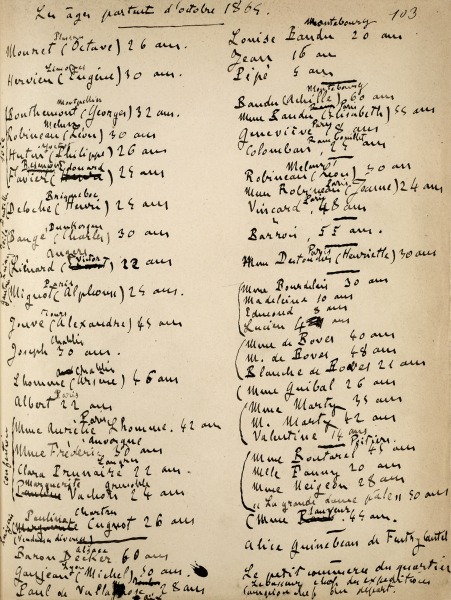 Les âges partant d'octobre 1864.
103
Plassans
Mouret (Octave) 26 ans.
Limoges
Hervieu (Eugène) 30 ans.
Montpellier
Bouthemont (Georges) 32 ans.
Melun
Robineau (Léon) 30 ans
Hutin (Philippe) 26 ans
Édouard
Favier 25 ans
Briquebec
Deloche (Henri) 25 ans
Dunkerque
Baugé (Charles) 30 ans
Angers
Liénard (Victor) 22 ans
Paris
Mignot (Alphonse) 25 ans.
Tours
Jouve (Alexandre) 45 ans
Chablis
Joseph 30 ans.
Chablis
Lhomme (Arsène) 46 ans
Paris
Albert 22 ans
Paris
Mme Aurélie Lhomme. 42 ans
Auvergne
Mme Frédéric 30 ans
Clara Prunaire 22 ans.
Marguerite Grenoble
Pauline Vadon 24 ans
Chartres
Pauline Cugnot 26 ans
Marguerite
Alsace
Baron 60 ans
Lyon
Gaujean (Michel) 50 ans
Paul de Vallagnosc 28 ans
Montebourg
Louise Baudu 20 ans
Jean 16 ans
Pépé 5 ans
Montebourg
Baudu (Achille) 60 ans
Paris
Mme Baudu (Elisabeth) 55 ans
Paris
Geneviève ans
Rambouillet
Colomban, 25 ans
Melun
Robineau (Léon) 30 ans
Paris
Mme Robineau (Jeanne) 24 ans
Paris
Vinçard, 48 ans
Barroi, 55 ans.
Paris
Mme Desforges (Henriette) 30 ans
Mme Bourdelais 30 ans
Madeleine 10 ans
Edmond 8 ans
Lucien 4 ans
Mme de Boves 40 ans
M. de Boves 48 ans
Blanche de Boves 21 ans
Mme Guibal 26 ans
Mme Marty 35 ans
M. Marty 42 ans
Valentine 14 ans
Poitiers
Mme Boutarel 45 ans
Melle Fanny 20 ans
Mme 28 ans
« La grande dame pâle » 30 ans
Mme 45 ans.
Alice
Le petit commerce du quartier
chef des expéditions
chef du départ.